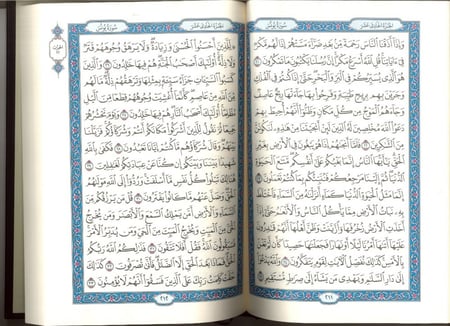 الجزء الحادي عشر
سورة يونس
وَإِذَا أَذَقْنَا النَّاسَ رَحْمَةً مِّن بَعْدِ ضَرَّاءَ مَسَّتْهُمْ إِذَا لَهُم مَّكْرٌ
فِي ءَايَاتِنَا قُلِ اللَّهُ أَسْرَعُ مَكْرًا إِنَّ رُسُلَنَا يَكْتُبُونَ مَا تَمْكُرُونَ ٢١
هُوَ الَّذِي يُسَيِّرُكُمْ فِي الْبَرِّ وَالْبَحْرِ حَتَّى إِذَا كُنتُمْ فِي الْفُلْكِ
وَجَرَيْنَ بِهِم بِرِيحٍ طَيِّبَةٍ وَفَرِحُوا بِهَا جَاءَتْهَا رِيحٌ عَاصِفٌ
وَجَاءَهُمُ الْمَوْجُ مِن كُلِّ مَكَانٍ وَظَنُّوا أَنَّهُمْ أُحِيطَ بِهِمْ
دَعَوُا اللَّهَ مُخْلِصِينَ لَهُ الدِّينَ لَئِنْ أَنجَيْتَنَا مِنْ هَذِهِ لَنَكُونَنَّ
مِنَ الشَّاكِرِينَ ٢٢ فَلَمَّا أَنجَاهُمْ إِذَا هُمْ يَبْغُونَ فِي الْأَرْضِ بِغَيْرِ
الْحَقِّ يَاأَيُّهَا النَّاسُ إِنَّمَا بَغْيُكُمْ عَلَى أَنفُسِكُم مَّتَاعَ الْحَيَاةِ
الدُّنْيَا ثُمَّ إِلَيْنَا مَرْجِعُكُمْ فَنُنَبِّئُكُم بِمَا كُنتُمْ تَعْمَلُونَ ٢٣
إِنَّمَا مَثَلُ الْحَيَاةِ الدُّنْيَا كَمَاءٍ أَنزَلْنَاهُ مِنَ السَّمَاءِ فَاخْتَلَطَ
بِهِ نَبَاتُ الْأَرْضِ مِمَّا يَأْكُلُ النَّاسُ وَالْأَنْعَامُ حَتَّى إِذَا أَخَذَتِ
الْأَرْضُ زُخْرُفَهَا وَازَّيَّنَتْ وَظَنَّ أَهْلُهَا أَنَّهُمْ قَادِرُونَ عَلَيْهَا
أَتَاهَا أَمْرُنَا لَيْلًا أَوْ نَهَارًا فَجَعَلْنَاهَا حَصِيدًا كَأَن لَّمْ تَغْنَ
بِالْأَمْسِ كَذَلِكَ نُفَصِّلُ الْآيَاتِ لِقَوْمٍ يَتَفَكَّرُونَ ٢٤ وَاللَّهُ يَدْعُوا
إِلَى دَارِ السَّلَامِ وَيَهْدِي مَن يَشَاءُ إِلَى صِرَاطٍ مُّسْتَقِيمٍ ٢٥
٢١١
الجزء الحادي عشر
سورة يونس
لِّلَّذِينَ أَحْسَنُوا الْحُسْنَى وَزِيَادَةٌ وَلَا يَرْهَقُ وُجُوهَهُمْ قَتَرٌ
وَلَا ذِلَّةٌ أُولَئِكَ أَصْحَابُ الْجَنَّةِ هُمْ فِيهَا خَالِدُونَ ٢٦ وَالَّذِينَ
كَسَبُوا السَّيِّئَاتِ جَزَاءُ سَيِّئَةٍ بِمِثْلِهَا وَتَرْهَقُهُمْ ذِلَّةٌ مَّا لَهُم
مِّنَ اللَّهِ مِنْ عَاصِمٍ كَأَنَّمَا أُغْشِيَتْ وُجُوهُهُمْ قِطَعًا مِّنَ اللَّيْلِ
مُظْلِمًا أُولَئِكَ أَصْحَابُ النَّارِ هُمْ فِيهَا خَالِدُونَ ٢٧ وَيَوْمَ نَحْشُرُهُمْ
جَمِيعًا ثُمَّ نَقُولُ لِلَّذِينَ أَشْرَكُوا مَكَانَكُمْ أَنتُمْ وَشُرَكَاؤُكُمْ فَزَيَّلْنَا
بَيْنَهُمْ وَقَالَ شُرَكَاؤُهُم مَّا كُنتُمْ إِيَّانَا تَعْبُدُونَ ٢٨ فَكَفَى بِاللَّهِ
شَهِيدًا بَيْنَنَا وَبَيْنَكُمْ إِن كُنَّا عَنْ عِبَادَتِكُمْ لَغَافِلِينَ ٢٩
هُنَالِكَ تَبْلُوا كُلُّ نَفْسٍ مَّا أَسْلَفَتْ وَرُدُّوا إِلَى اللَّهِ مَوْلَاهُمُ
الْحَقِّ وَضَلَّ عَنْهُم مَّا كَانُوا يَفْتَرُونَ ٣٠ قُلْ مَن يَرْزُقُكُم مِّنَ
السَّمَاءِ وَالْأَرْضِ أَمَّن يَمْلِكُ السَّمْعَ وَالْأَبْصَارَ وَمَن يُخْرِجُ
الْحَيَّ مِنَ الْمَيِّتِ وَيُخْرِجُ الْمَيِّتَ مِنَ الْحَيِّ وَمَن يُدَبِّرُ الْأَمْرَ
فَسَيَقُولُونَ اللَّهُ فَقُلْ أَفَلَا تَتَّقُونَ ٣١ فَذَلِكُمُ اللَّهُ رَبُّكُمُ
الْحَقُّ فَمَاذَا بَعْدَ الْحَقِّ إِلَّا الضَّلَالُ فَأَنَّى تُصْرَفُونَ ٣٢ كَذَلِكَ
حَقَّتْ كَلِمَتُ رَبِّكَ عَلَى الَّذِينَ فَسَقُوا أَنَّهُمْ لَا يُؤْمِنُونَ ٣٣
٢١٢